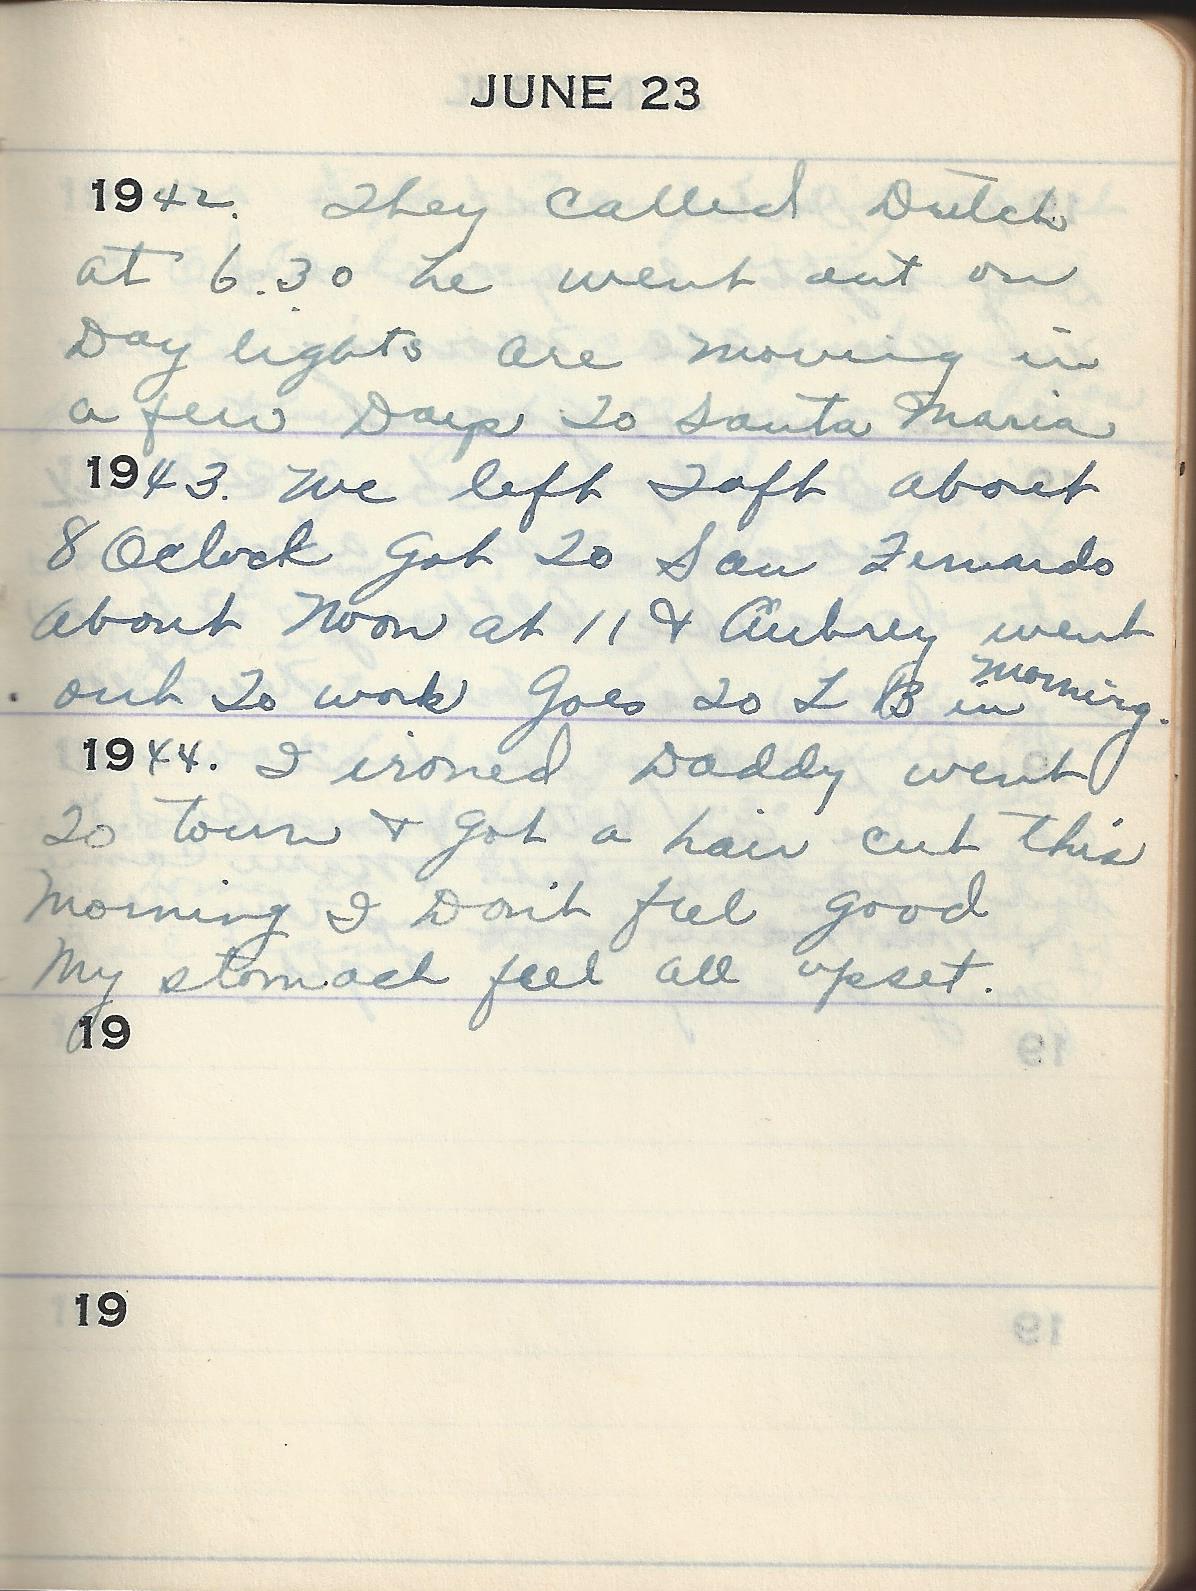 JUNE 23
1942. They called Dutch
at 6.30 he went out on
Day lights are moving in
a few Days To Santa Maria
1943. We left Taft about
8 Oclock Got To San Fernardo
About Noon at 11 & Aubrey went
out To work Goes to L B in morning.
1944. I ironed Daddy went
To Town & Got a hair cut this
Morning I Don't feel good
My stomach feel all upset.
19
19